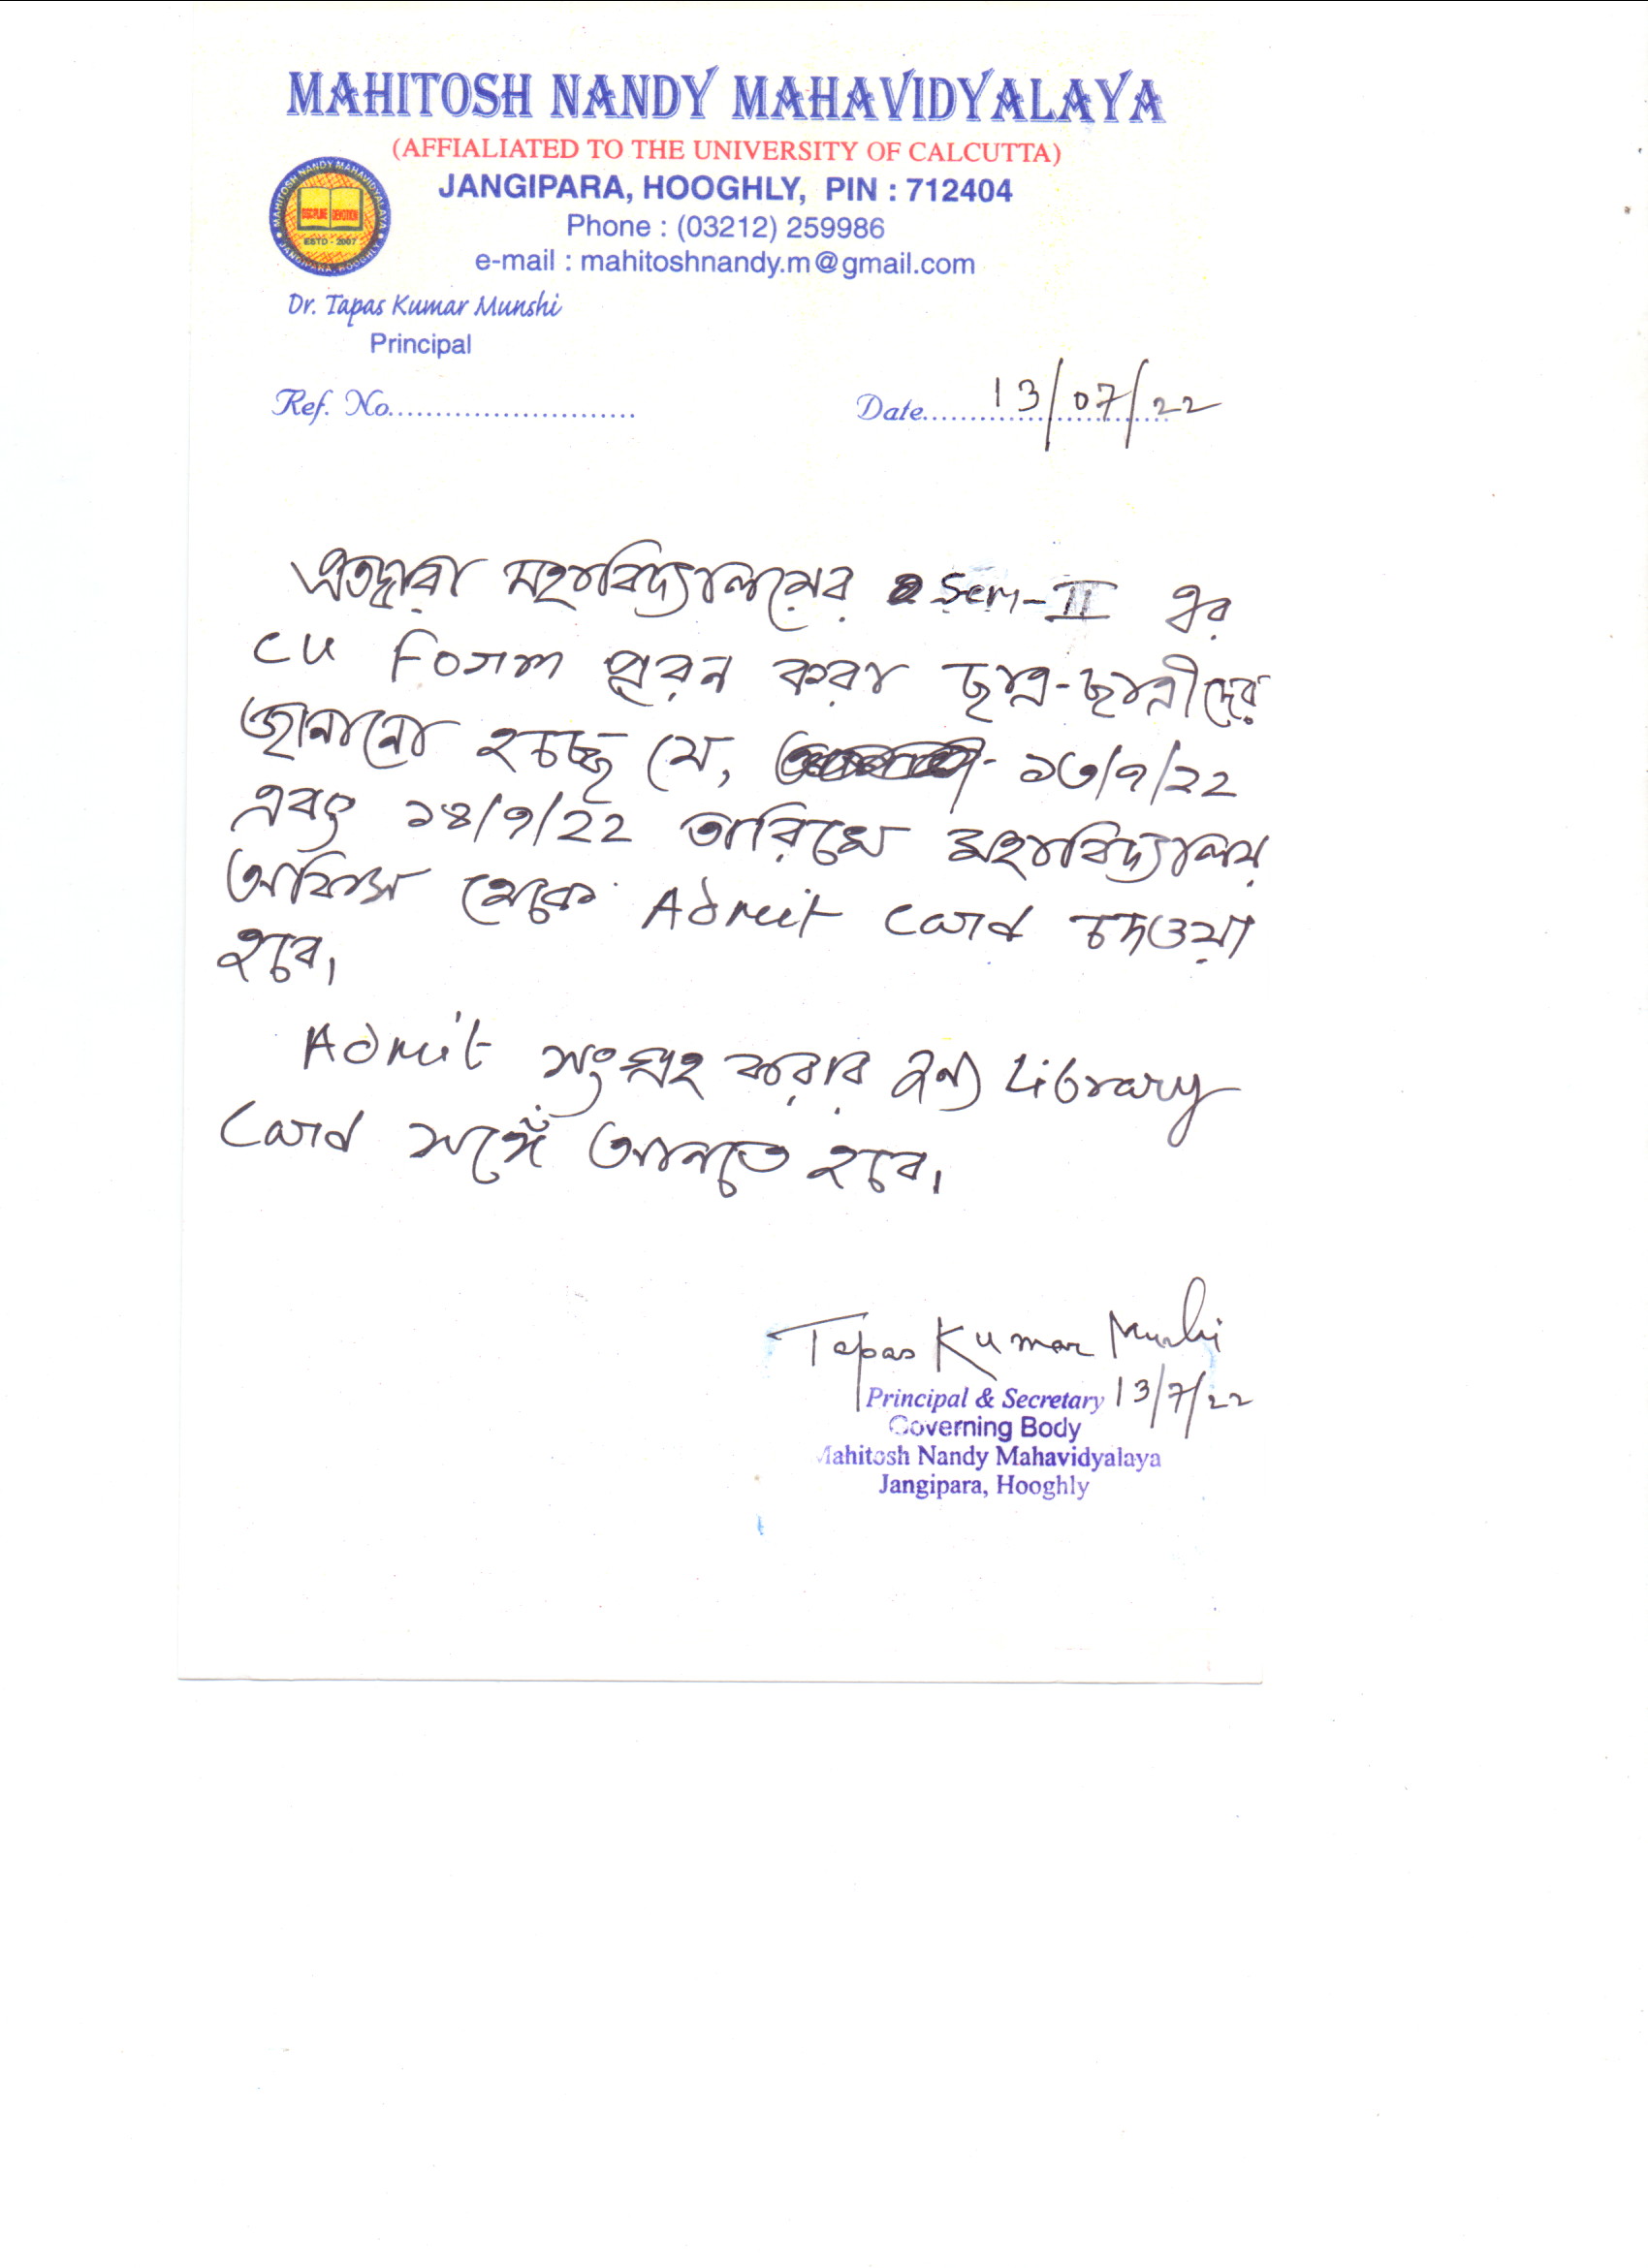 MAHITOSH NANDY MAHAVIDYALAYA
(AFFIALIATED TO THE UNIVERSITY OF CALCUTTA)
JANGIPARA, HOOGHLY, PIN : 712404
Phone : (03212) 259986
e-mail : mahitoshnandy.m@gmail.com
MAHITOSH NANDY MAHAVIDYALAYA
DISCIPLINE DEVOTION
ESTD - 2007
JANGIPARA, HOOGHLY
Dr. Tapas Kumar Munshi
Principal
Ref. No.......................... Date.......................... 13/07/22
এতদ্বারা মহাবিদ্যালয়ের Sem-II এর
CU Form পূরন করা ছাত্র-ছাত্রীদের
জানানো হচ্ছে যে, ১৩/৭/২২
এবং ১৪/৭/২২ তারিখে মহাবিদ্যালয়
অফিস থেকে Admit Card দেওয়া
হবে।
Admit সংগ্রহ করার জন্য Library
Card সঙ্গে আনতে হবে।
Tapas Kumar Munshi
Principal & Secretary 13/7/22
Governing Body
Mahitosh Nandy Mahavidyalaya
Jangipara, Hooghly